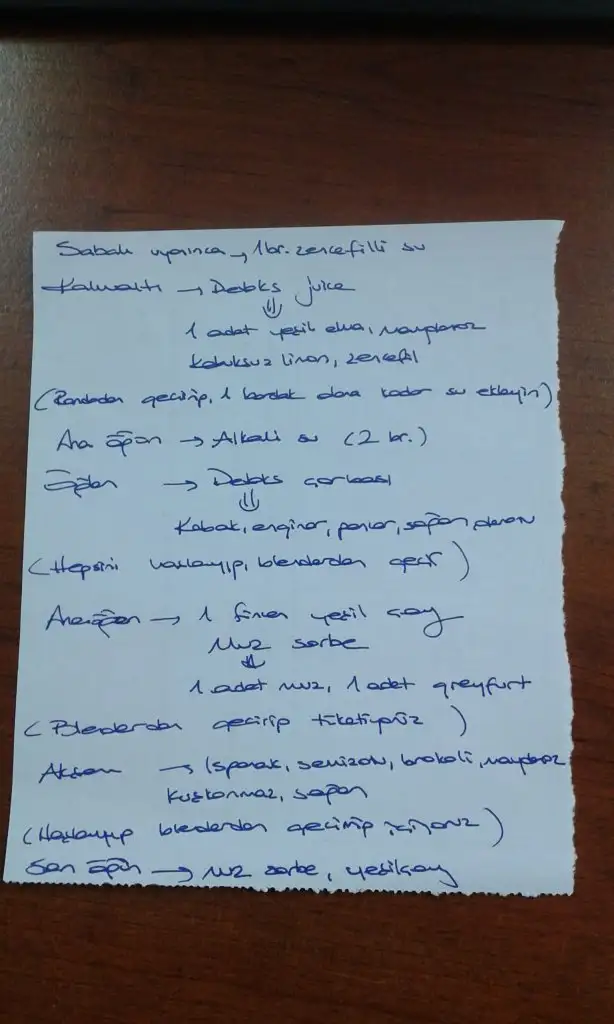 Sabah uyanınca → 1 br. zencefilli su
Kahvaltı → Detoks juice
⇓
1 adet yeşil elma, maydanoz
Kabuksuz limon, zencefil
(Rondodan geçirip, 1 bardak olana kadar su ekleyin)
Ara öğün → Alkali su (2 br.)
Öğlen → Detoks çorbası
⇓
Kabak, enginar, pancar, soğan,
(Hepsini haşlayıp, blenderdan geçir)
Araöğün → 1 fincan yeşil çay
Muz sorbe
↓
1 adet muz, 1 adet greyfurt
(Blenderdan geçirip tüketiyoruz)
Akşam → Ispanak, semizotu, brokoli, maydanoz
Kuşkonmaz, soğan
(Haşlayıp blenderdan geçirip içiyoruz)
Son öğün → muz sorbe, yeşilçay